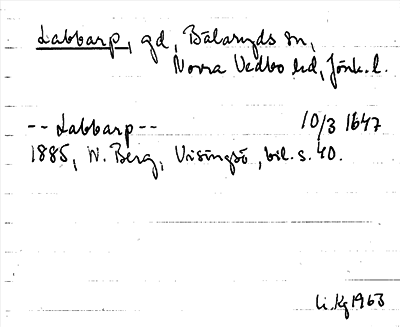 Labbarp, gd, Bälaryds sn,
Norra Vedbo hd, Jönk. l.
-- Labbarp -- 10/3 1647
1885, W. Berg, Visingsö, bil. s. 40.
Li. Kg 1963